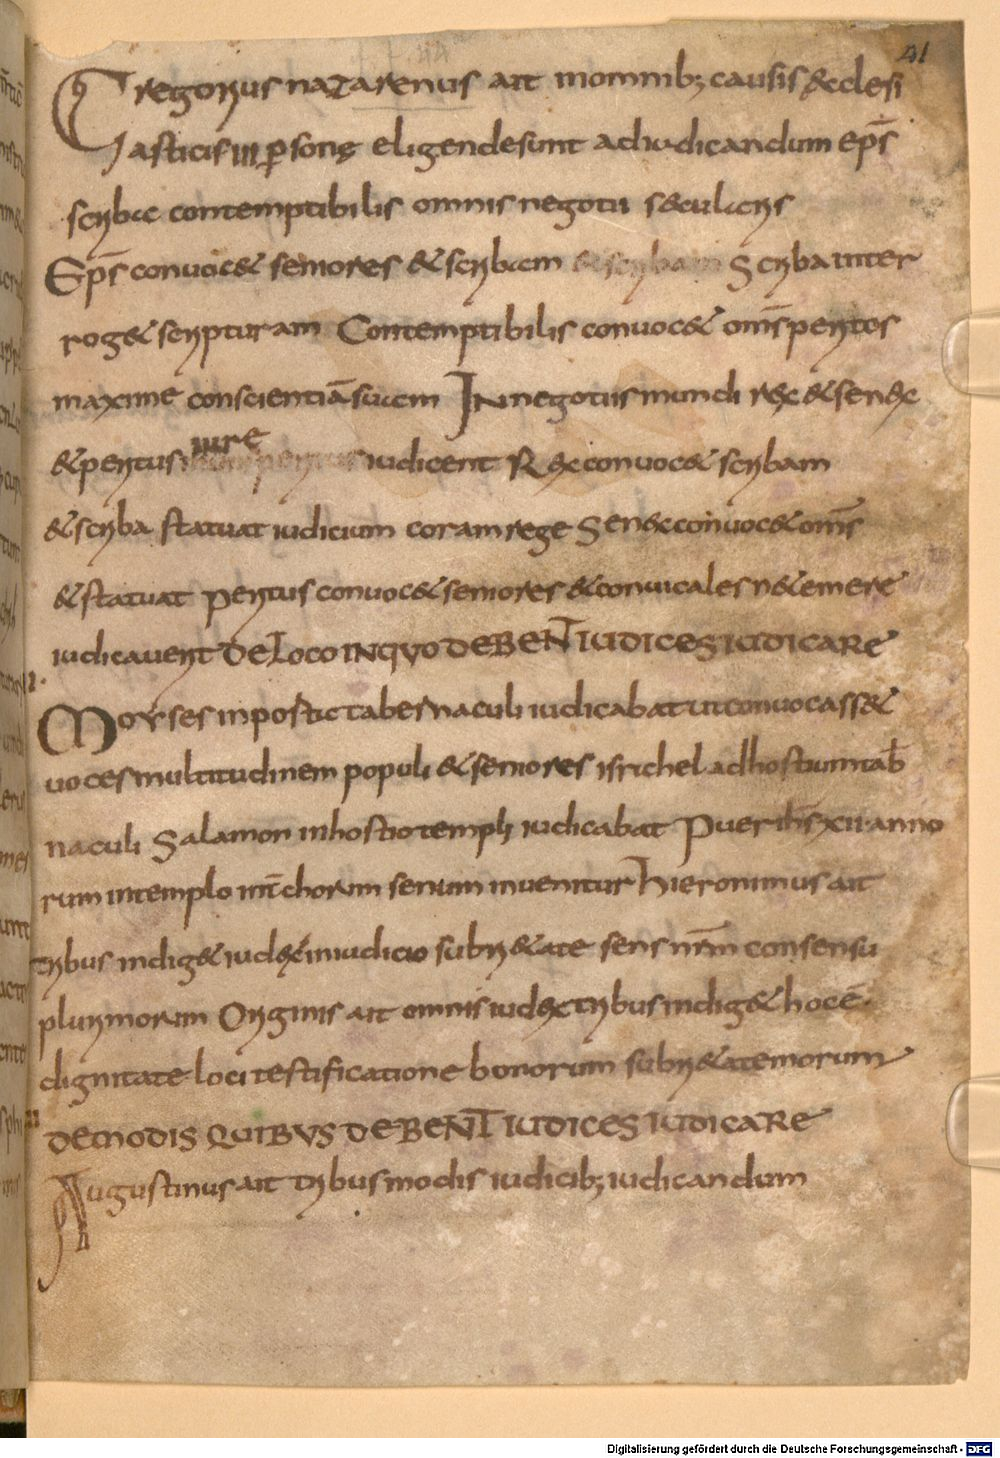 41
Gregorius nazarenus ait inomnib; causis &clesi
asticis III p̲sonę eligendesunt adiudicandum ep̄s
scriba contemptibilis omnis negotii s&cularis
Ep̄s conuoc& seniores & scribam & scribam Scriba inter
rog& scripturam Contemptibilis conuoc& om̄s peritos
maxime conscientiā suam Innegotiis mundi rex & senex
& peritus iure iudicent Rex conuoc& scribam
& scriba statuat iudicium coram rege Senex conuoc& om̄s
& statuat peritus conuoc& seniores & conuicales n& emere
iudicauerit DELOCO INQVO DEBENT IUDICES IUDICARE
Moyses inpostic tabernaculi iudicabat ut conuocass&
uoces multitudinem populi & seniores isrichel adhostium tab̄
naculi Salamon inhostio templi iudicabat Pueri hīs xii anno
rum intemplo int̄ chorum senum inuenitur hieronimus ait
tribus indig& iudex iniudicio subri&ate sens nr̄m consensu
plurimorum Originis ait omnis iudex tribus indig& hoc ē
dignitate loci testificatione bonorum subri&atemorum
DEMODIS QUIBVS DEBENT IUDICES IUDICARE
Augustinus ait tribus modis iudicib; iudicandum
Digitalisierung gefördert durch die Deutsche Forschungsgemeinschaft - DFG